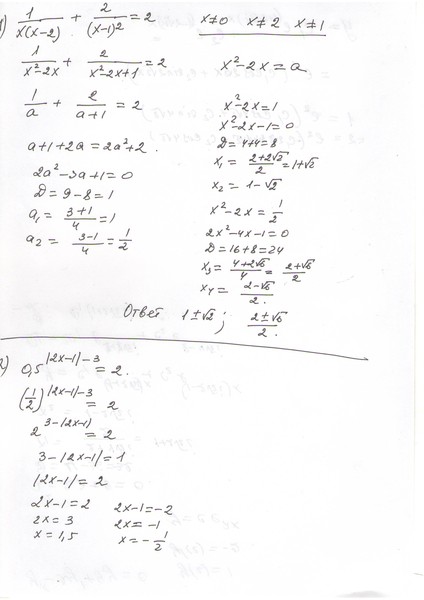 1) 1/x(x-2) + 2/(x-1)² = 2    x≠0  x≠2  x≠1
1/x²-2x + 2/x²-2x+1 = 2
1/a + 2/a+1 = 2
a+1+2a = 2a²+2.
2a²-3a+1=0
D = 9-8=1
a₁ = 3+1/4 = 1
a₂ = 3-1/4 = 1/2
x²-2x = a
x²-2x=1
x²-2x-1=0
D=4+4=8
x₁ = 2+2√2/2 = 1+√2
x₂ = 1-√2
x²-2x = 1/2
2x²-4x-1=0
D=16+8=24
x₃ = 4+2√6/4 = 2+√6/2
x₄ = 2-√6/2.
Ответ 1±√2 ; 2±√6/2.
2) 0,5^|2x-1|-3 = 2.
(1/2)^|2x-1|-3 = 2
2^3-|2x-1| = 2
3-|2x-1|=1
|2x-1|=2
2x-1=2    2x-1=-2
2x=3    2x=-1
x=1,5    x=-1/2